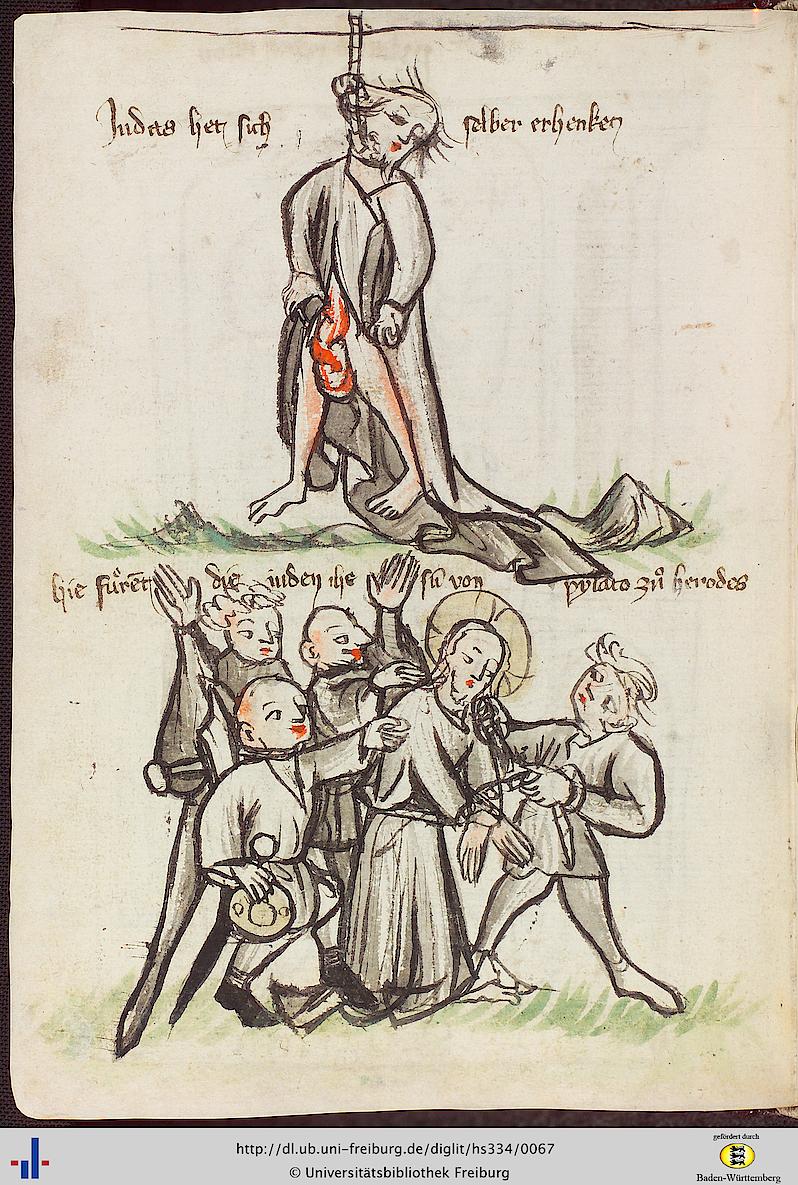 Judas het sich selber erhenket
hie fuͦret die iuden ihesū von pylato zuͦ herodes
http://dl.ub.uni-freiburg.de/diglit/hs334/0067
© Universitätsbibliothek Freiburg
gefördert durch
Baden-Württemberg